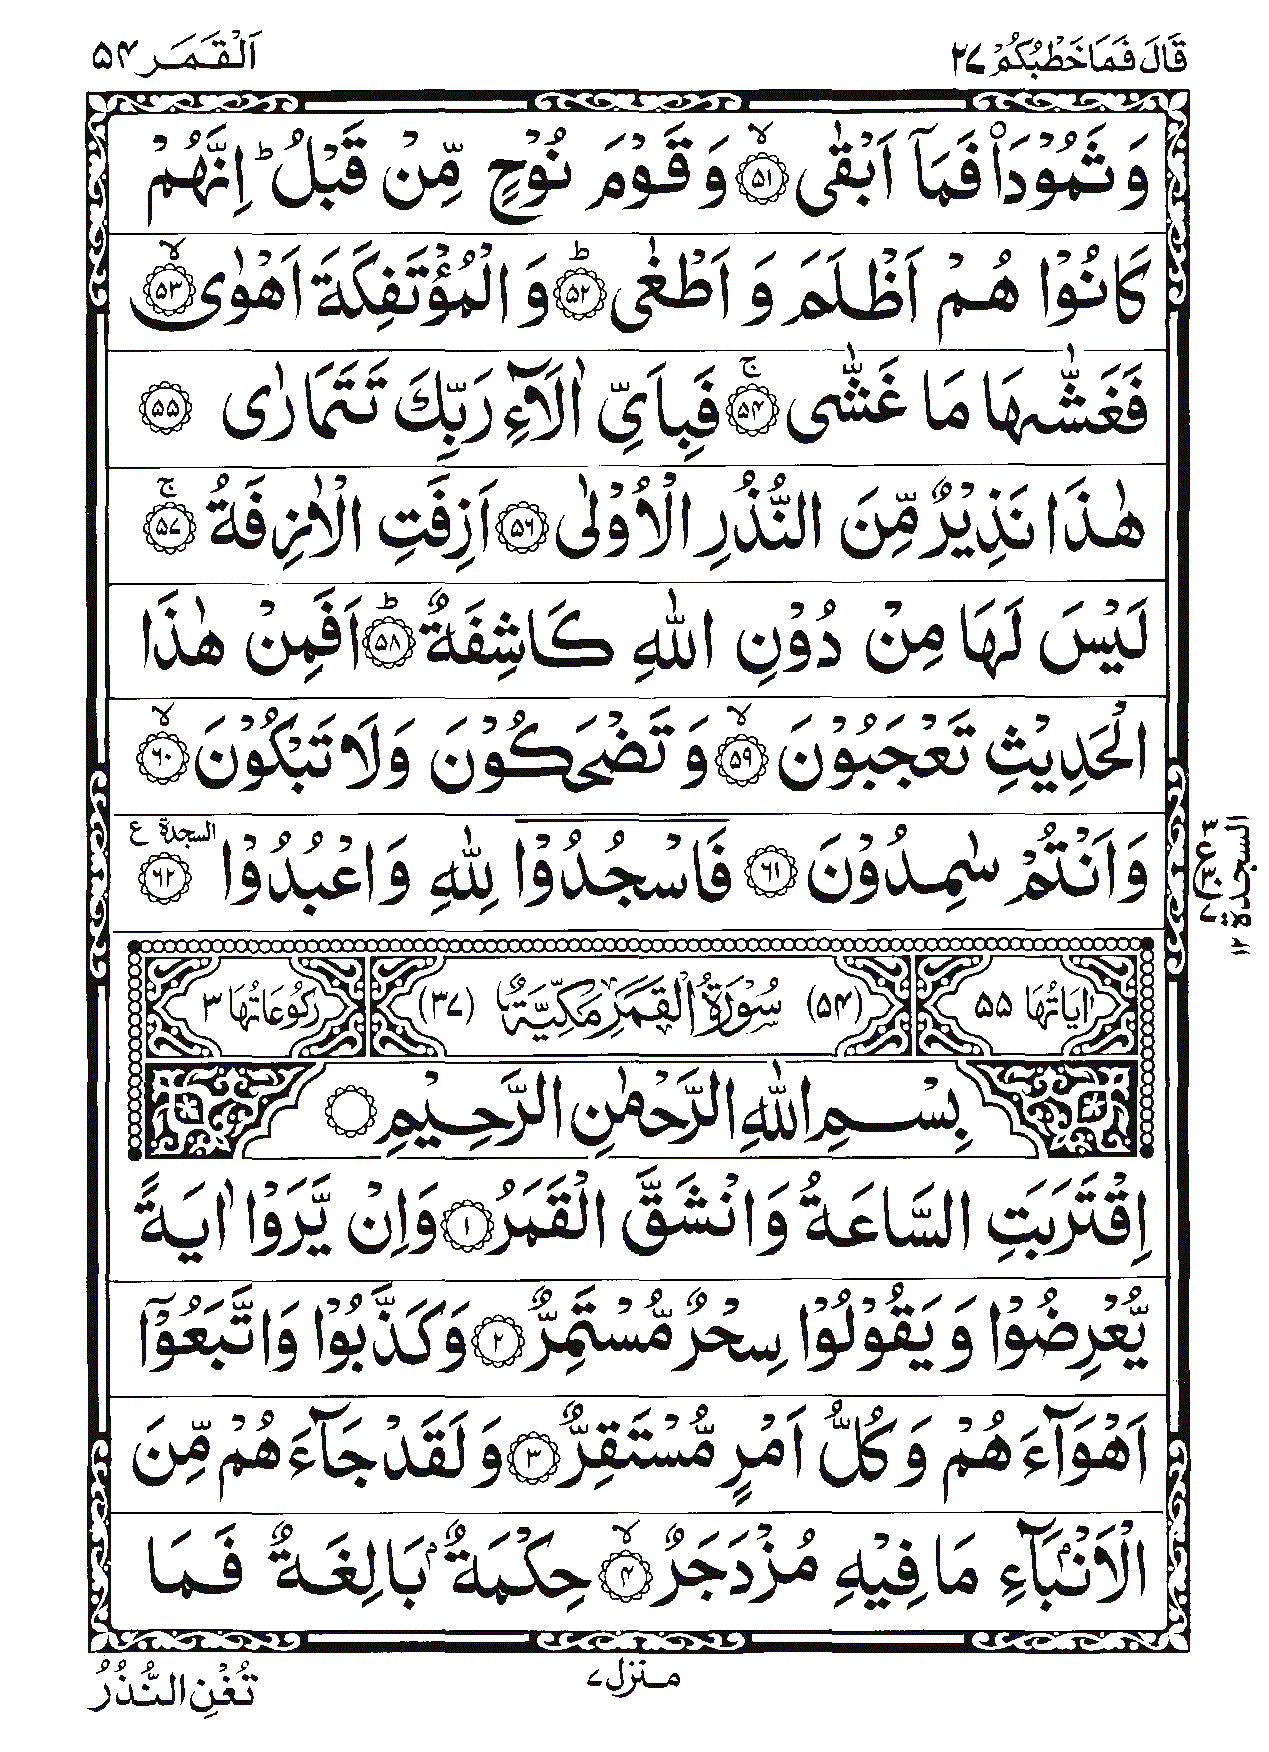 قَالَ فَمَا خَطْبُكُمْ ۲۷
اَلْقَمَر ۵۴
وَ ثَمُوْدَا۠ فَمَاۤ اَبْقٰى ۙ‏﴿۵۱﴾ وَ قَوْمَ نُوْحٍ مِّنْ قَبْلُ ؕ اِنَّهُمْ
كَانُوْا هُمْ اَظْلَمَ وَ اَطْغٰى ؕ‏﴿۵۲﴾ وَ الْمُؤْتَفِكَةَ اَهْوٰى ۙ‏﴿۵۳﴾
فَغَشّٰىهَا مَا غَشّٰى ۚ‏﴿۵۴﴾ فَبِاَيِّ اٰلَآءِ رَبِّكَ تَتَمَارٰى ﴿۵۵﴾
هٰذَا نَذِيْرٌ مِّنَ النُّذُرِ الْاُوْلٰى ﴿۵۶﴾ اَزِفَتِ الْاٰزِفَةُ ۚ‏﴿۵۷﴾
لَيْسَ لَهَا مِنْ دُوْنِ اللّٰهِ كَاشِفَةٌ ؕ‏﴿۵۸﴾ اَفَمِنْ هٰذَا
الْحَدِيْثِ تَعْجَبُوْنَ ۙ‏﴿۵۹﴾ وَ تَضْحَكُوْنَ وَلَا تَبْكُوْنَ ۙ‏﴿۶۰﴾
وَاَنْتُمْ سٰمِدُوْنَ ﴿۶۱﴾ فَاسْجُدُوْا لِلّٰهِ وَاعْبُدُوْا السجدة ع ﴿۶۲﴾
السجدة ۱۲
۳ ع ۳۰ ۷
اٰيَاتُهَا ۵۵ (۵۴) سُوْرَةُ الْقَمَرِ مَكِّيَّةٌ (۳۷) رُكُوْعَاتُهَا ۳
بِسْمِ اللّٰهِ الرَّحْمٰنِ الرَّحِيْمِ
اِقْتَرَبَتِ السَّاعَةُ وَانْشَقَّ الْقَمَرُ ﴿۱﴾ وَاِنْ يَّرَوْا اٰيَةً
يُّعْرِضُوْا وَ يَقُوْلُوْا سِحْرٌ مُّسْتَمِرٌّ ﴿۲﴾ وَكَذَّبُوْا وَاتَّبَعُوْۤا
اَهْوَآءَهُمْ وَ كُلُّ اَمْرٍ مُّسْتَقِرٌّ ﴿۳﴾ وَ لَقَدْ جَآءَهُمْ مِّنَ
الْاَنْۢبَآءِ مَا فِيْهِ مُزْدَجَرٌ ۙ‏﴿۴﴾ حِكْمَةٌۢ بَالِغَةٌ فَمَا
مـنزل ۷
تُغْنِ النُّذُرُ